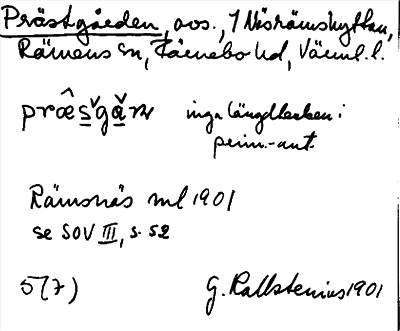 Prästgården, avs., i Näsrämshyttan,
Rämens sn, Färnebo hd, Värml. l.
inga längdtecken i
prim.-ant.
Rämsnäs ml 1901
se SOV III, s. 52
5(7) G. Kallstenius 1901